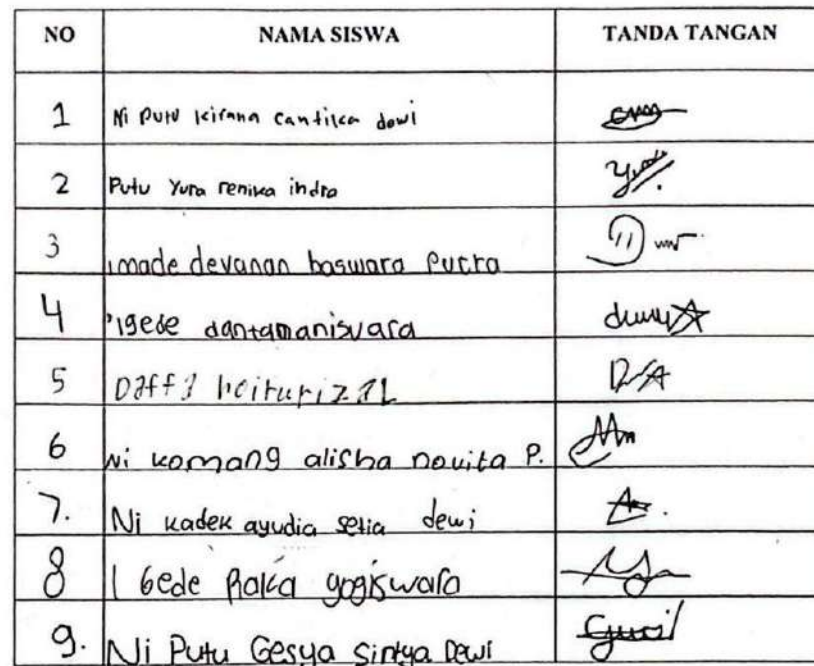 NO NAMA SISWA TANDA TANGAN
1 Ni Putu kirana cantika dewi
2 Putu Yura renika indra
3 imade devanan baswara Putra
4 igede dantamanisvara
5 Daffa
6 Ni komang alisha novita P.
7. Ni kadek ayudia setia dewi
8 I Gede Raka yogiswara
9. Ni Putu Gesya Sintya Dewi